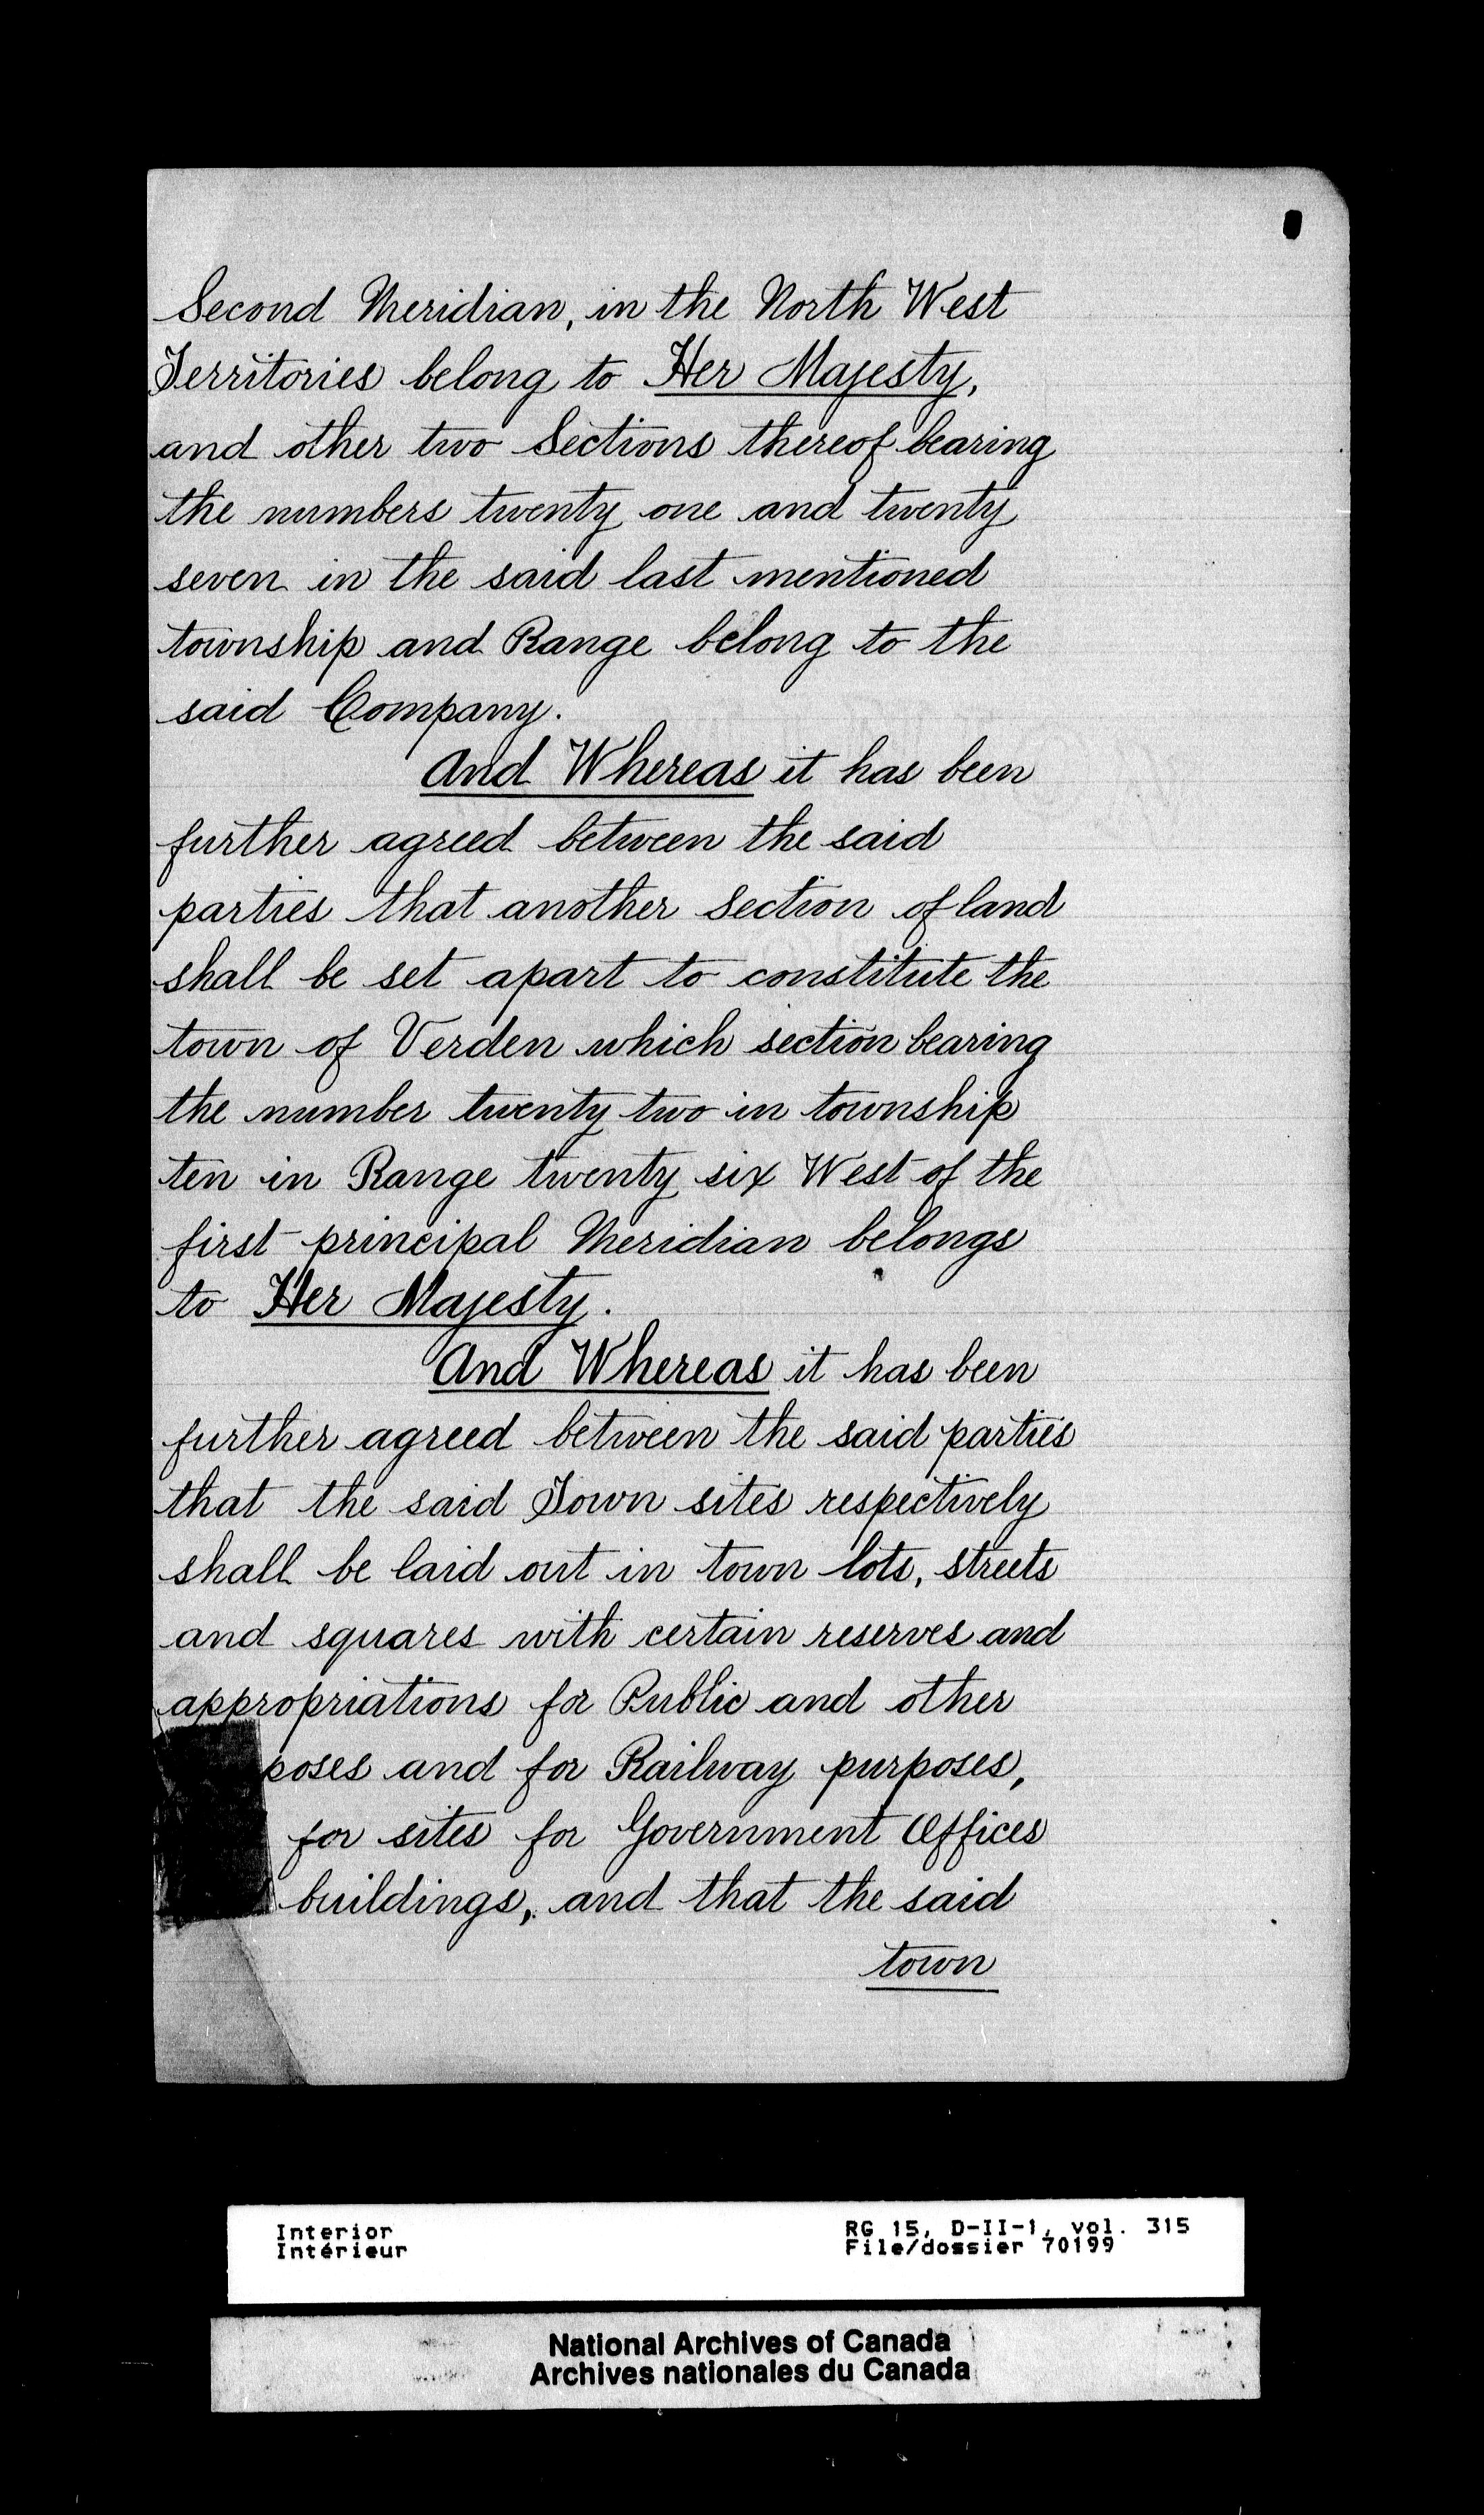 Second Meridian, in the North West
Territories belong to Her Majesty,
and other two Sections thereof bearing
the numbers twenty one and twenty
seven in the said last mentioned
township and Range belong to the
said Company.
And Whereas it has been
further agreed between the said
parties that another section of land
shall be set apart to constitute the
town of Verden which section bearing
the number twenty two in township
ten in Range twenty six West of the
first principal Meridian belongs
to Her Majesty.
And Whereas it has been
further agreed between the said parties
that the said Town sites respectively
shall be laid out in town lots, streets
and squares with certain reserves and
appropriations for Public and other
poses and for Railway purposes,
for sites for Government Offices
buildings, and that the said
town
Interior
Intérieur
RG 15, D-II-1, vol. 315
File/dossier 70199
National Archives of Canada
Archives nationales du Canada